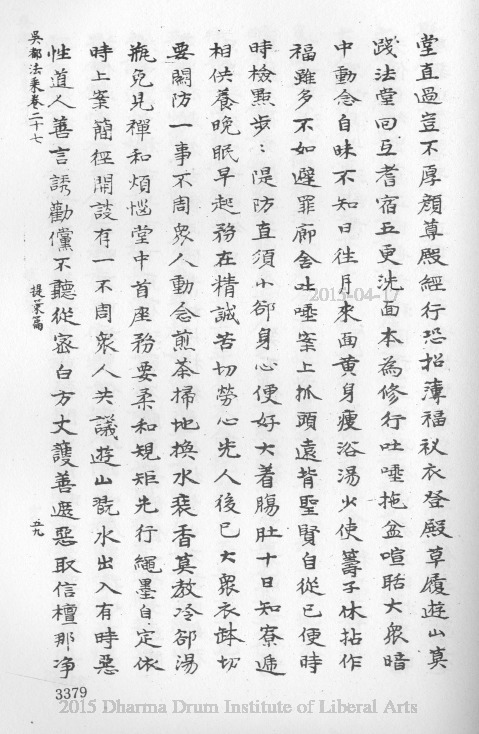 堂直過豈不厚顏尊殿經行恐招薄福衩衣登殿草履遊山莫
踐法堂回互耆宿五更洗面本為修行吐唾拖盆喧聒大眾暗
中動念自昧不知日往月來面黃身瘦浴湯少使籌子休拈作
福雖多不如避罪廊舍吐唾案上抓頭遠背聖賢自從已便時
時檢點步〻隄防直須小郤身心便好大着腸肚十日知寮遞
相供養晚眠早起務在精誠苦切勞心先人後已大眾衣鉢切
要關防一事不周眾人動念煎茶掃地換水裝香莫教冷郤湯
瓶免見禪和煩惱堂中首座務要柔和規矩先行繩墨自定依
時上案簡徑開談有一不周眾人共議遊山翫水出入有時惡
性道人善言誘勸儻不聽從密白方丈護善遮惡取信檀那净
吳都法乘卷二十七
提䇿篇
五九
3379
2015-04-17
2015 Dharma Drum Institute of Liberal Arts